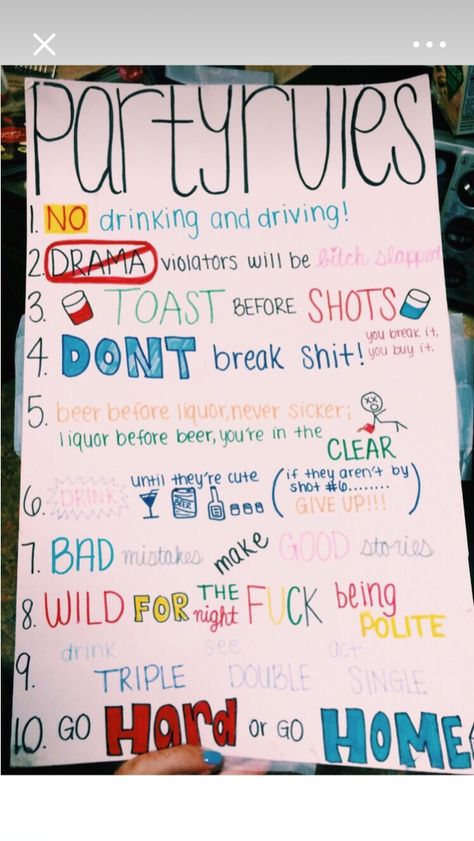 Partyrules
1. NO drinking and driving!
2. DRAMA violators will be bitch slapped
3. TOAST BEFORE SHOTS
4. DONT break shit! you break it,
you buy it.
5. beer before liquor, never sicker;
liquor before beer, you're in the
CLEAR
6. DRINK until they're cute (if they aren't by
shot #6........
GIVE UP!!!)
7. BAD mistakes make GOOD stories
8. WILD FOR THE night FUCK being
POLITE
9. drink see act
TRIPLE DOUBLE SINGLE
10. GO Hard or GO HOME